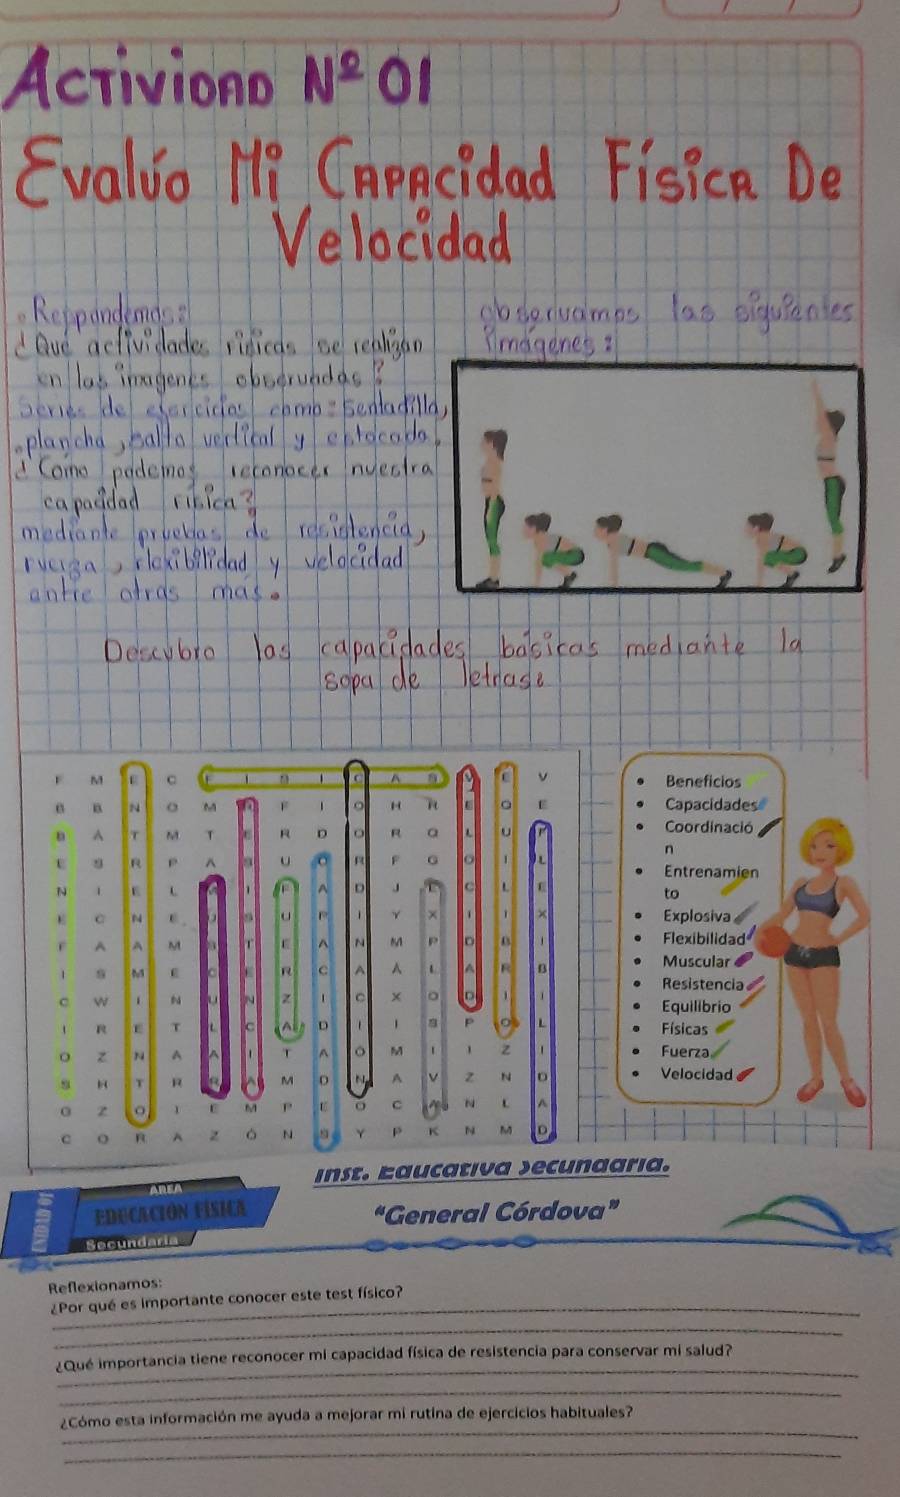 Activionao Nº 01
Evalúo Mi Capacidad Física De
Velocidad
Reppondemos:
¿Qué actividades rísicas se realizan
en las imagenes observadas?
Series de ejercicios como: sentadilla,
plancha, salto vertical y estocada.
¿Como podemos reconocer nuestra
capacidad rísica?
mediante pruebas de resistencia,
ruerza, rlexibilidad y velocidad
entre otras mas.
observamos las siguientes
imágenes:
Descubro las capacidades básicas mediante la
sopa de letras:
F M E C F I S I C A S V E V
B B N O M R F I O H R E O E
B A T M T E R D O R Q L U F
E S R P A S U C R F G O I L
N I E L M I F A D J E C L E
E C N E U S U P I Y X I I X
F A A M S T E A N M P D B I
I S M E C E R C A Á L A R B
C W I N U N Z I C X O D I I
I R E T L C A D I I S P O L
O Z N A A I T A O M I I Z I
S H T R R A M D N A V Z N D
O Z O I E M P E O C A N L A
C O R A Z Ó N S Y P K N M D
• Beneficios
• Capacidades
• Coordinació
n
• Entrenamien
to
• Explosiva
• Flexibilidad
• Muscular
• Resistencia
• Equilibrio
• Físicas
• Fuerza
• Velocidad
UNIDAD 01
ÁREA
EDUCACIÓN FÍSICA
Secundaria
Inst. Educativa Secundaria.
"General Córdova"
Reflexionamos:
¿Por qué es importante conocer este test físico?
¿Qué importancia tiene reconocer mi capacidad física de resistencia para conservar mi salud?
¿Cómo esta información me ayuda a mejorar mi rutina de ejercicios habituales?